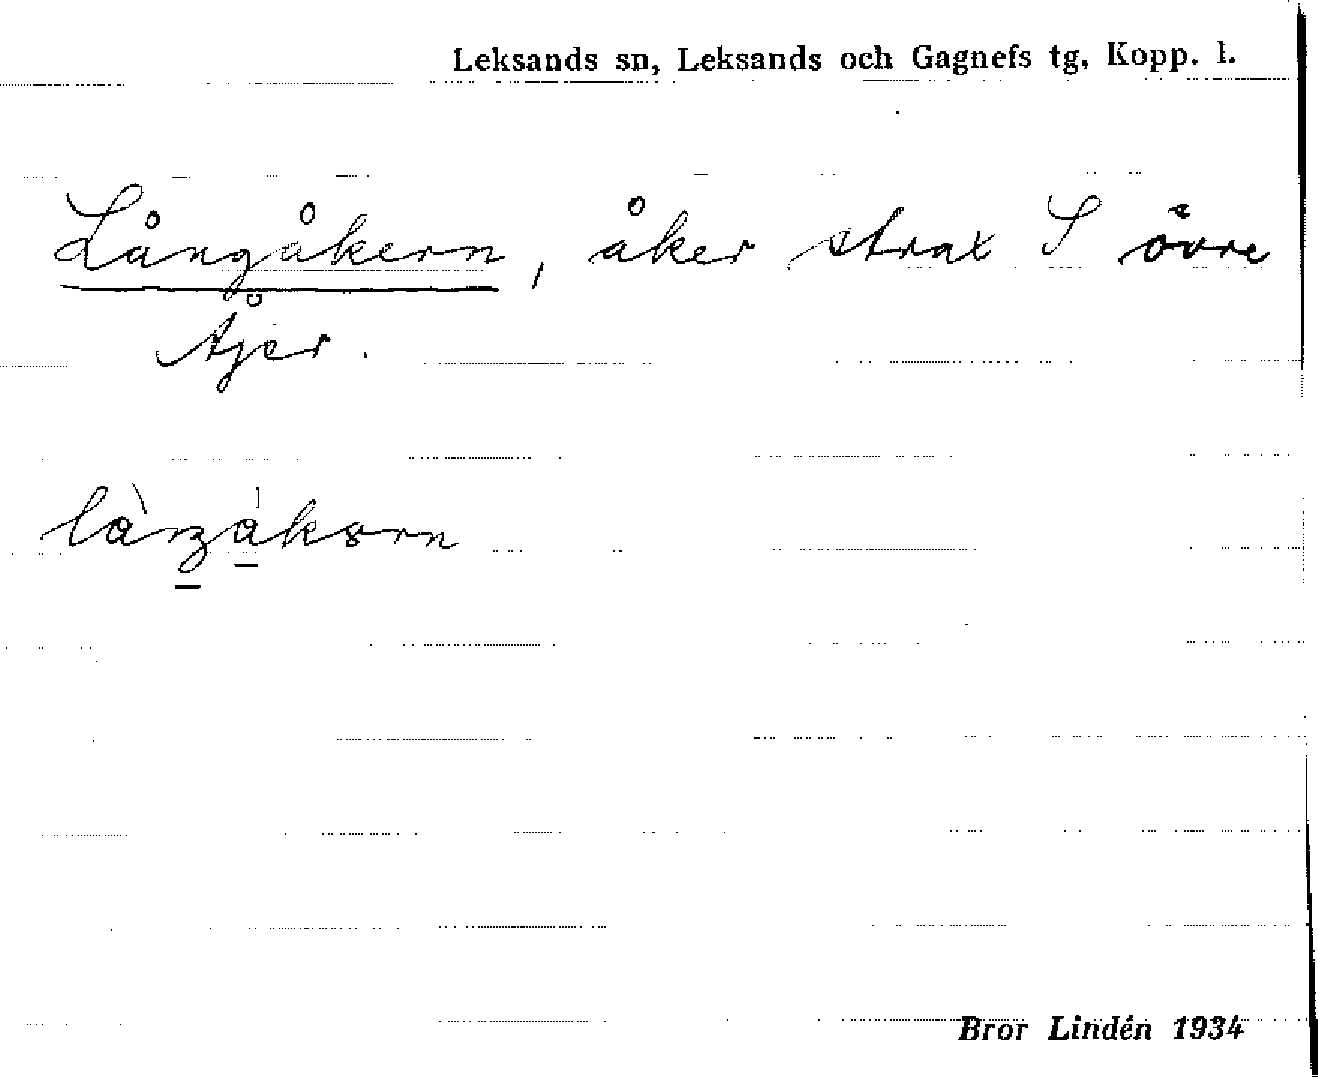 Leksands sn, Leksands och Gagnefs tg, Kopp. l.
Långåkern, åker strax S övre
Tjer.
Bror Lindén 1934